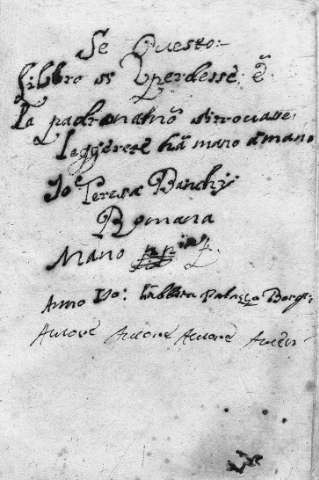 Se Questo
libbro si perdesse e
la padrona nõ si trovasse
leggerete hà mano à mano
Io Teresa Banchi
Romana
Mano
Anno Palazzo Borg:
Autore Autore Autore Autore